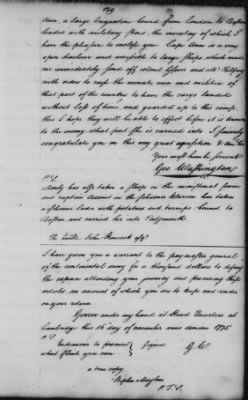 Ann, a large Brigantine bound from London to Boston
loaded with military stores, the inventory of which I
have the pleasure to enclose you. Cape Ann is a very
open harbour and accessible to large ships which made
me immediately send off Colonel Glover and Mr Palfrey
with orders to raise the minute men and militia of
that part of the country to have the cargo landed
without loss of time, and guarded up to this camp.
this I hope they will be able to effect before it is known
to the enemy what port she is carried into. I sincerely
congratulate you on this very great acquisition &
Your most humble servant
Geo Washington
P.S.
Manly has also taken a sloop in the ministerial service
and captain Adams in the schooner Warren has taken
a schooner laden with potatoes and turnips bound to
Boston and carried her into Portsmouth.
To John Hancock esqr
I have given you a warrant to the paymaster general
of the continental army for a thousand dollars to defray
the expence attending your journey and procuring these
articles, an account of which you are to keep and render
on your return
Given under my hand at Head Quarters at
Cambridge this 16 day of november anno domini 1775
P.S.
Endeavour to procure
what flints you can
Signed G W
a true copy
Stephen Moylan
P.T.S.